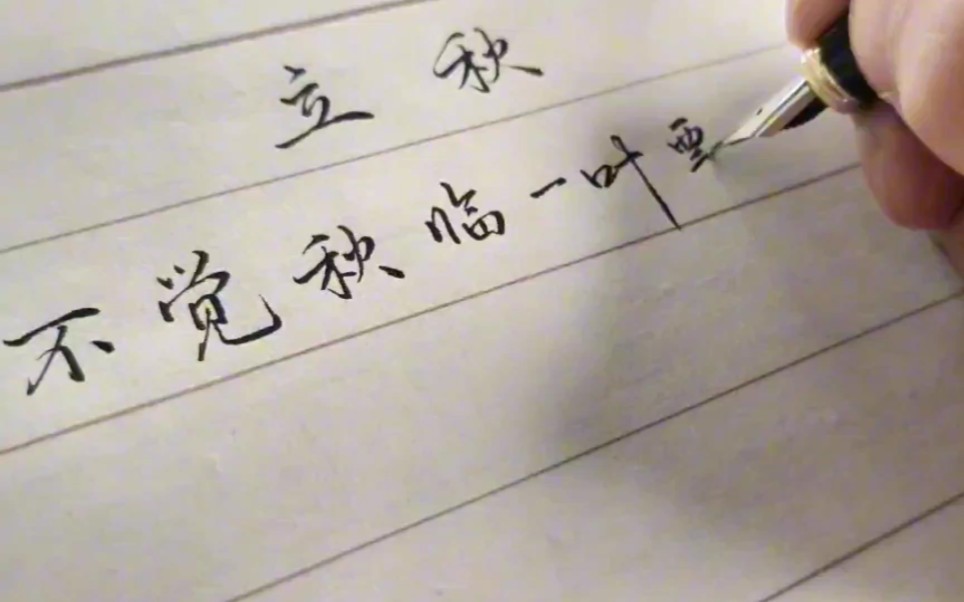 立秋
不觉秋临一叶票